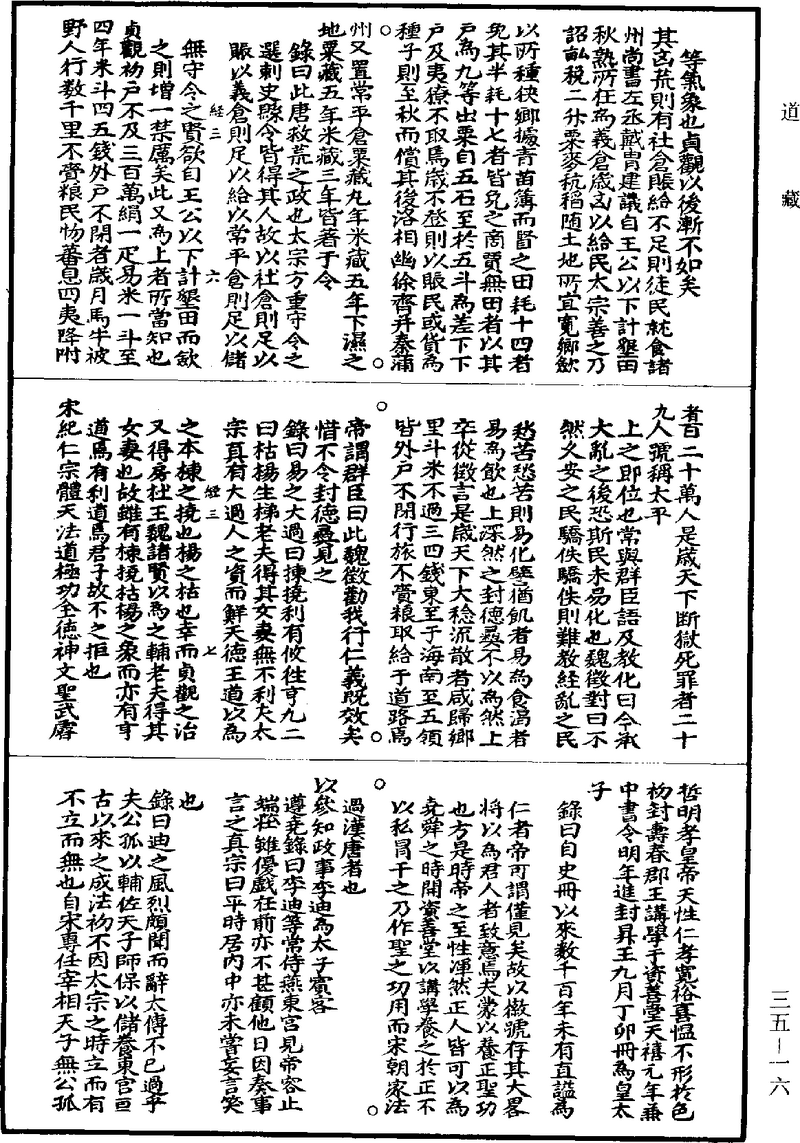 道藏
等氣象也貞觀以後漸不如矣
其凶荒則有社倉賑給不足則徙民就食諸
州尚書左丞戴胄建議自王公以下計墾田
秋熟所在為義倉歲凶以給民太宗善之乃
詔畝稅二升粟麥秔稻隨土地所宜寬鄉斂
以所種狹鄉據青苗簿而督之田耗十四者
免其半耗十七者皆免之商賈無田者以其
戶為九等出粟自五石至於五斗為差下下
戶及夷獠不取焉歲不登則以賑民或貸為
種子則至秋而償其後洛相幽徐齊并秦蒲
州又置常平倉粟藏九年米藏五年下濕之
地粟藏五年米藏三年皆著于令
錄曰此唐救荒之政也太宗方重守令之
選刺史縣令皆得其人故以社倉則足以
賑以義倉則足以給以常平倉則足以儲
経三 六
無守令之賢欲自王公以下計墾田而斂
之則增一禁厲矣此又為上者所當知也
貞觀初戶不及三百萬絹一疋易米一斗至
四年米斗四五錢外戶不閉者歲月馬牛被
野人行數千里不齎粮民物蕃息四夷降附
者百二十萬人是歲天下斷獄死罪者二十
九人號稱太平
上之即位也常與群臣語及教化曰今承
大亂之後恐斯民未易化也魏徵對曰不
然久安之民驕佚驕佚則難教経亂之民
愁苦愁苦則易化譬猶飢者易為食渴者
易為飲也上深然之封德彝不以為然上
卒從徵言是歲天下大稔流散者咸歸鄉
里斗米不過三四錢東至于海南至五領
皆外戶不閉行旅不齎粮取給于道路焉
帝謂群臣曰此魏徵勸我行仁義既效矣
惜不令封德彝見之
錄曰易之大過曰棟撓利有攸往亨九二
曰枯楊生梯老夫得其女妻無不利夫太
宗真有大過人之資而鮮天德王道以為
経三 七
之本棟之撓也楊之枯也幸而貞觀之治
又得房杜王魏諸賢以為之輔老夫得其
女妻也故雖有棟撓枯楊之象而亦有亨
道焉有利道焉君子故不之拒也
宋紀仁宗體天法道極功全德神文聖武睿
哲明孝皇帝天性仁孝寬裕喜慍不形於色
初封壽春郡王講學于資善堂天禧元年兼
中書令明年進封昇王九月丁卯冊為皇太
子
錄曰自史冊以來數千百年未有直謚為
仁者帝可謂僅見矣故以徽號存其大畧
將以為君人者致意焉夫蒙以養正聖功
也方是時帝之至性渾然正人皆可以為
堯舜之時開資善堂以講學養之於正不
以私冒干之乃作聖之功用而宋朝家法
過漢唐者也
以參知政事李迪為太子賓客
遵堯錄曰李迪等常侍燕東宮見帝容止
端莊雖優戲在前亦不甚顧他日因奏事
言之真宗曰平時居內中亦未嘗妄言笑
也
錄曰迪之風烈頗聞而辭太傅不已過乎
夫公孤以輔佐天子師保以儲養東宮亘
古以來之成法初不因太宗之時立而有
不立而無也自宋專任宰相天子無公孤
三五－一六